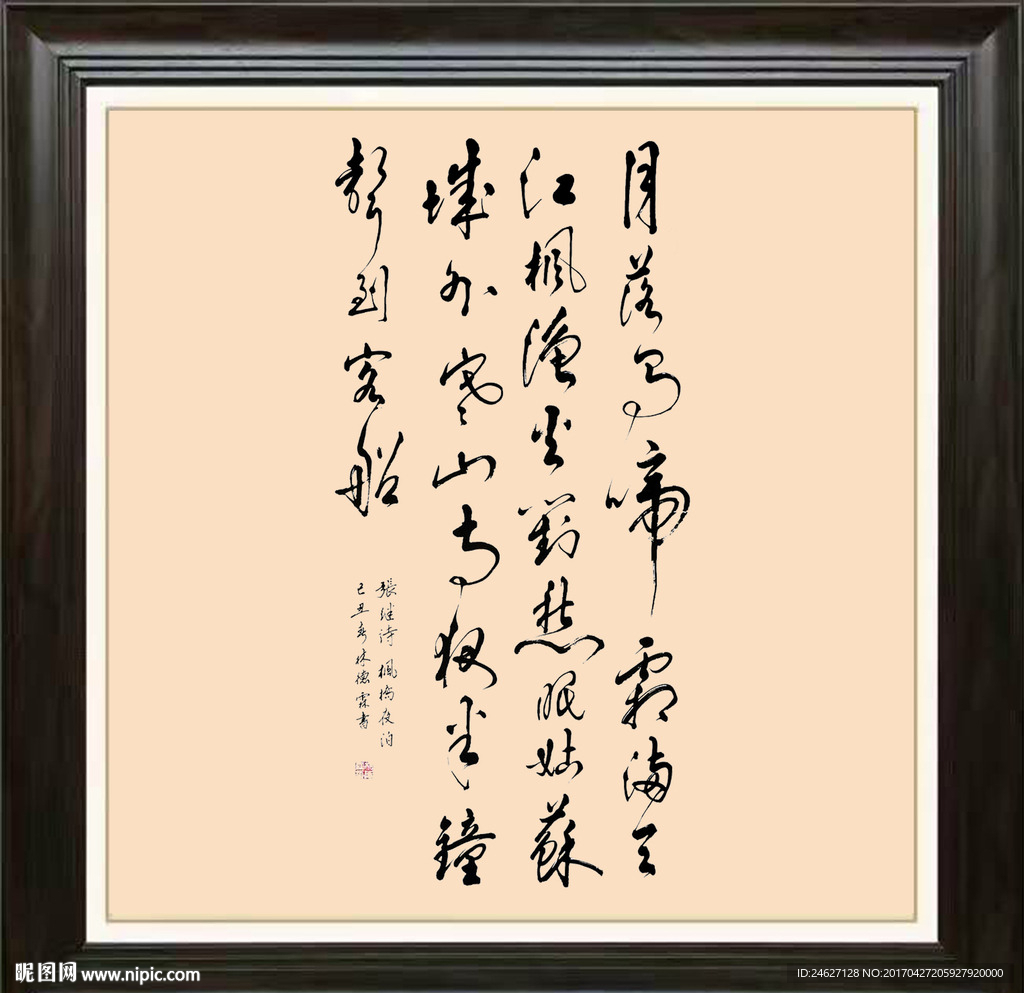 月落烏啼霜滿天
江楓漁火對愁眠姑蘇
城外寒山寺夜半鐘
聲到客船
張继诗 楓橋夜泊
己丑春林德霖書
昵图网 www.nipic.com
ID:24627128 NO:20170427205927920000